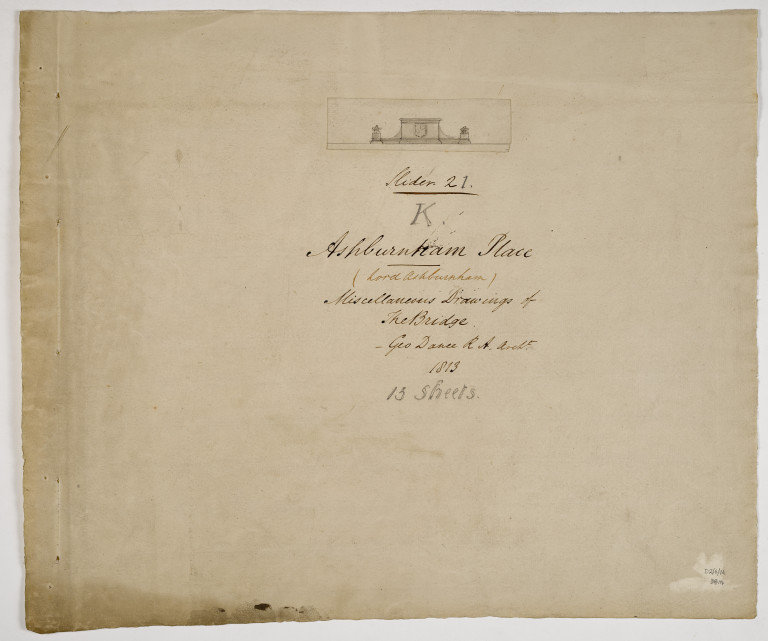 Slider 21.
K.
Ashburnham Place
(Lord Ashburnham)
Miscellaneous Drawings of
The Bridge.
- Geo Dance R A. Archt.
1813
15 Sheets.